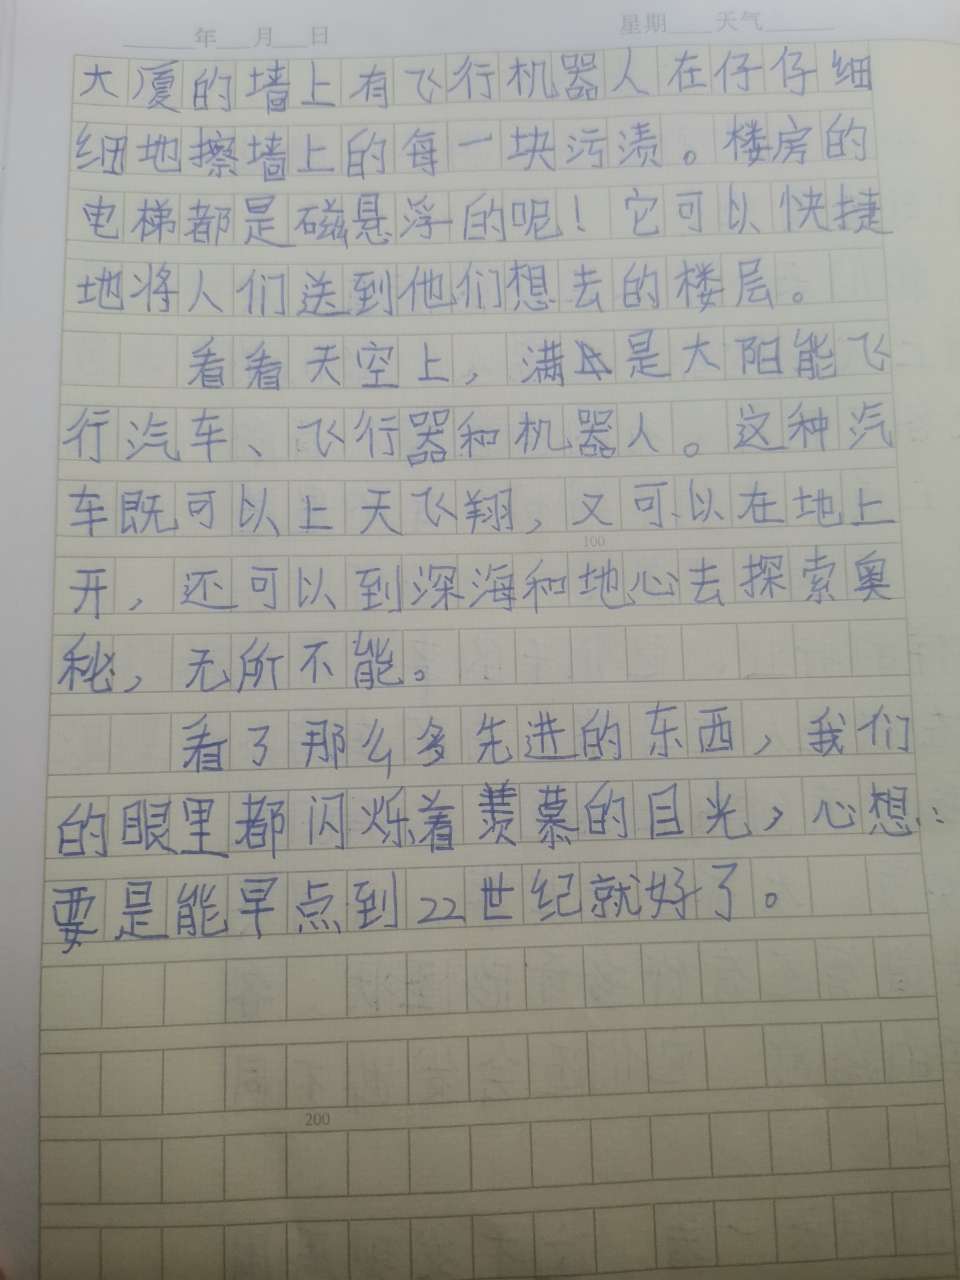 年 月 日 星期 天气
大厦的墙上有飞行机器人在仔仔细
细地擦墙上的每一块污渍。楼房的
电梯都是磁悬浮的呢！它可以快捷
地将人们送到他们想去的楼层。
看看天空上，满是大阳能飞
行汽车、飞行器和机器人。这种汽
车既可以上天飞翔，又可以在地上
100
开，还可以到深海和地心去探索奥
秘，无所不能。
看了那么多先进的东西，我们
的眼里都闪烁着羡慕的目光，心想：
要是能早点到22世纪就好了。
200